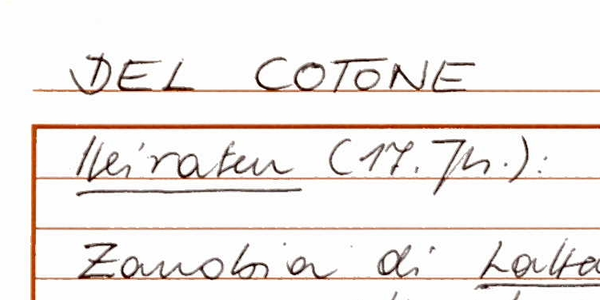 DEL COTONE
Heiraten (17. Jh.):
Zanobia di